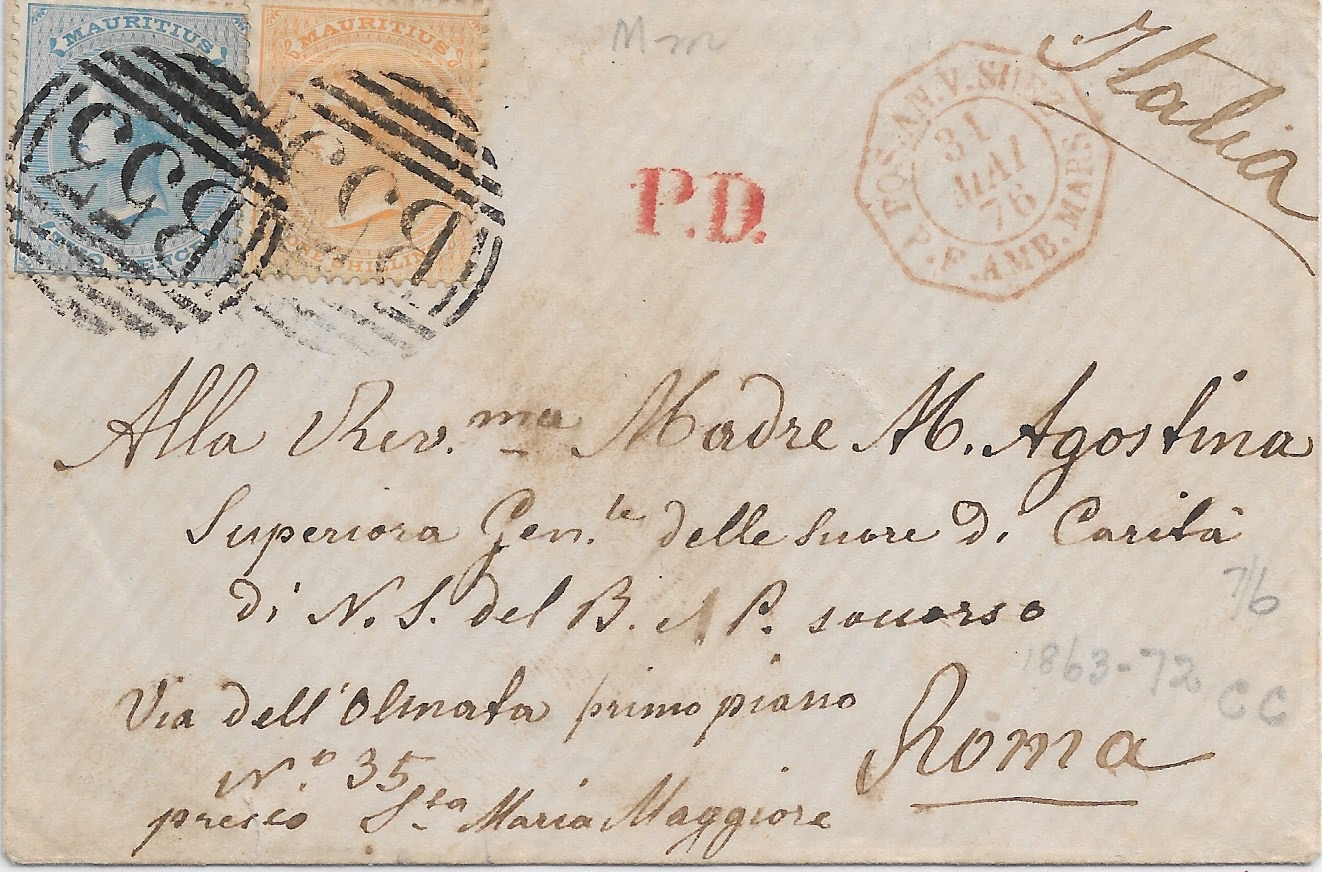 MAURITIUS
TWO PENCE
B53
MAURITIUS
ONE SHILLING
B53
P.D.
POS.AN.V.SUEZ
31
MAI
76
P.F.AMB.MARS
Italia
Alla Rev.ma Madre M. Agostina
Superiora Gen.le delle Suore di Carità
di N. S. del B. e P. soccorso
Via dell'Olmata primo piano
N.o 35
presso Sta Maria Maggiore
Roma
7/6
1863-72
CC